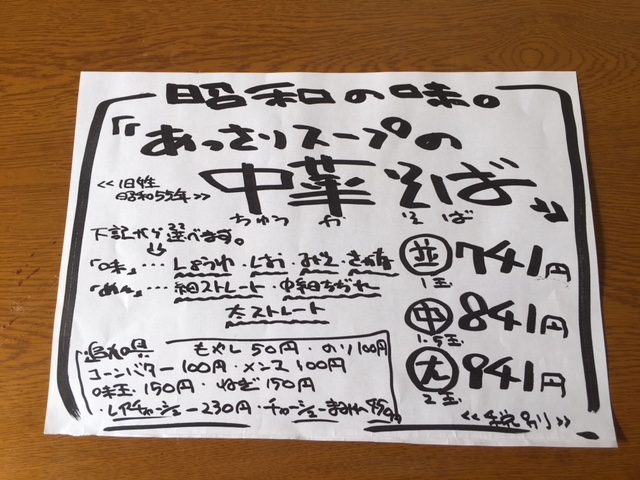 昭和の味。
「あっさりスープの
中華そば」
ちゅう か そ ば
<<旧姓
昭和55年>>
下記から選べます。
「味」…しょうゆ・しお・みそ・さかな
「めん」…細ストレート・中細ちぢれ
太ストレート
並 741円
1玉
中 841円
1.5玉
大 941円
2玉
<<税別>>
追加の具 もやし50円・のり100円
コーンバター100円・メンマ100円
味玉・150円・ねぎ150円
・レアチャーシュー230円・チャーシュー